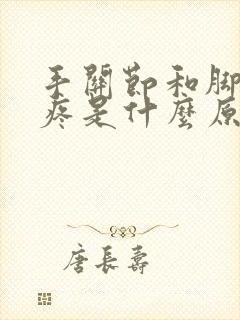 手關節和腳
疼是什麼原
唐長壽